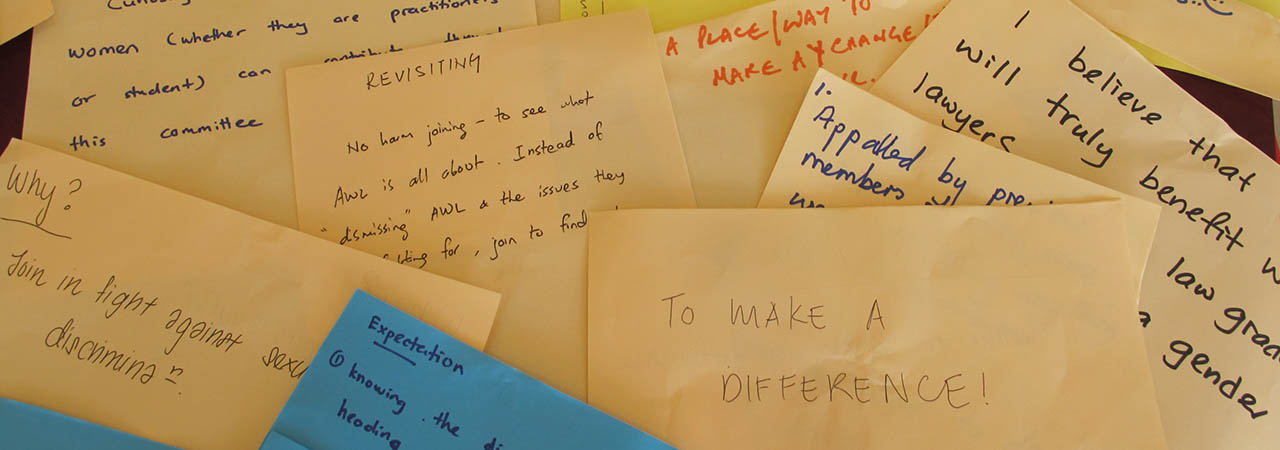 women (whether they are practitioners
or student) can contribute
this committee
REVISITING
No harm joining – to see what
AWL is all about. Instead of
"dismissing" AWL & the issues they
for, join to find
A PLACE/WAY TO
MAKE A CHANGE
I believe that
will truly benefit
lawyers
law grad
gender
1.
Appalled by
members
Why?
Join in fight against
discriminaⁿ
Expectation
① knowing the
heading
TO MAKE A
DIFFERENCE!